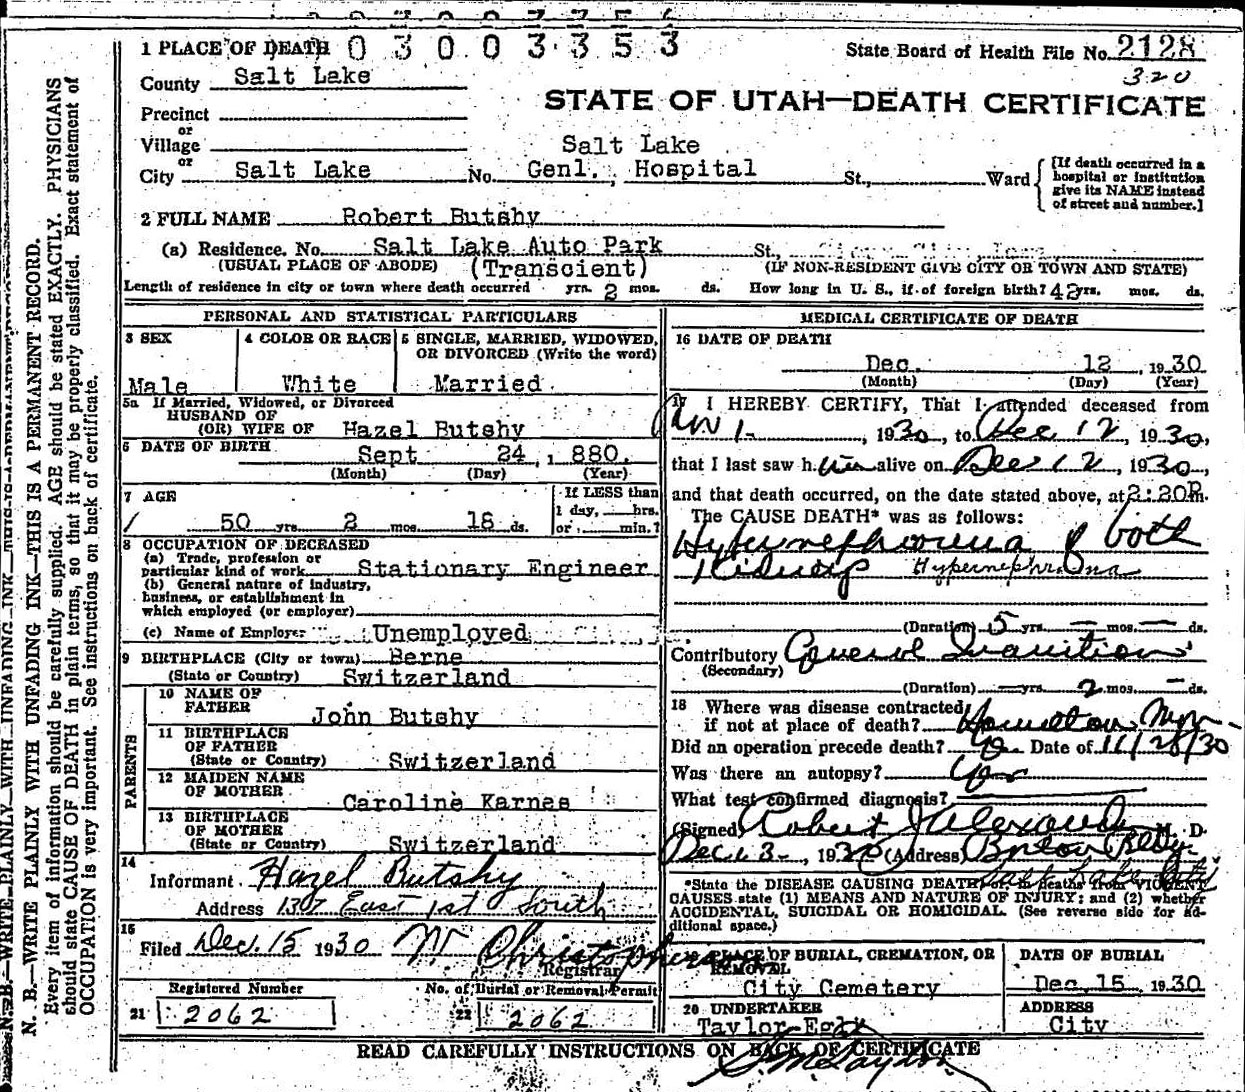 0 3 0 0 3 3 5 3
1 PLACE OF DEATH
State Board of Health File No. 2128
320
County Salt Lake
STATE OF UTAH—DEATH CERTIFICATE
Precinct
or
Village
Salt Lake
or
City Salt Lake No. Genl. Hospital St., Ward
[If death occurred in a hospital or institution give its NAME instead of street and number.]
2 FULL NAME Robert Butshy
(a) Residence. No. Salt Lake Auto Park St.,
(USUAL PLACE OF ABODE) (Transcient) (IF NON-RESIDENT GIVE CITY OR TOWN AND STATE)
Length of residence in city or town where death occurred yrs. 2 mos. ds. How long in U. S., if of foreign birth? 42 yrs. mos. ds.
PERSONAL AND STATISTICAL PARTICULARS
3 SEX
Male
4 COLOR OR RACE
White
5 SINGLE, MARRIED, WIDOWED, OR DIVORCED (Write the word)
Married
5a If Married, Widowed, or Divorced
HUSBAND OF
(OR) WIFE OF Hazel Butshy
6 DATE OF BIRTH
Sept 24, 1880.
(Month) (Day) (Year)
7 AGE
50 yrs. 2 mos. 18 ds.
If LESS than
1 day, hrs.
or min.?
8 OCCUPATION OF DECEASED
(a) Trade, profession or
particular kind of work Stationary Engineer
(b) General nature of industry,
business, or establishment in
which employed (or employer)
(c) Name of Employer Unemployed
9 BIRTHPLACE (City or town) Berne
(State or Country) Switzerland
PARENTS
10 NAME OF
FATHER
John Butshy
11 BIRTHPLACE
OF FATHER
(State or Country) Switzerland
12 MAIDEN NAME
OF MOTHER
Caroline Karnes
13 BIRTHPLACE
OF MOTHER
(State or Country) Switzerland
14
Informant Hazel Butshy
Address 1307 East 1st South
15
Filed Dec. 15 1930 W Christopherson
Registrar
Registered Number
21 2062
No. of Burial or Removal Permit
22 2062
MEDICAL CERTIFICATE OF DEATH
16 DATE OF DEATH
Dec. 12, 1930
(Month) (Day) (Year)
17 I HEREBY CERTIFY, That I attended deceased from
Nov 1, 1930, to Dec 12, 1930,
that I last saw him alive on Dec 12, 1930,
and that death occurred, on the date stated above, at 2:20P.m.
The CAUSE DEATH* was as follows:
Hypernephroma of both
Kidneys Hypernephroma
(Duration) 5 yrs. — mos. — ds.
Contributory General Inanition
(Secondary)
(Duration) — yrs. 2 mos. — ds.
18 Where was disease contracted
if not at place of death?
Did an operation precede death? Yes Date of 11/28/30
Was there an autopsy? Yes
What test confirmed diagnosis?
(Signed) Robert J Alexander M. D.
Dec 13, 1930 (Address) Boston Bldg.
Salt Lake City
*State the DISEASE CAUSING DEATH, or, in deaths from VIOLENT
CAUSES state (1) MEANS AND NATURE OF INJURY; and (2) whether
ACCIDENTAL, SUICIDAL OR HOMICIDAL. (See reverse side for additional space.)
19 PLACE OF BURIAL, CREMATION, OR
REMOVAL
City Cemetery
DATE OF BURIAL
Dec. 15, 1930
20 UNDERTAKER
Taylor-Egly
ADDRESS
City
READ CAREFULLY INSTRUCTIONS ON BACK OF CERTIFICATE
N. B.—WRITE PLAINLY WITH UNFADING INK—THIS IS A PERMANENT RECORD.
Every item of information should be carefully supplied. AGE should be stated EXACTLY. PHYSICIANS
should state CAUSE OF DEATH in plain terms, so that it may be properly classified. Exact statement of
OCCUPATION is very important. See instructions on back of certificate.